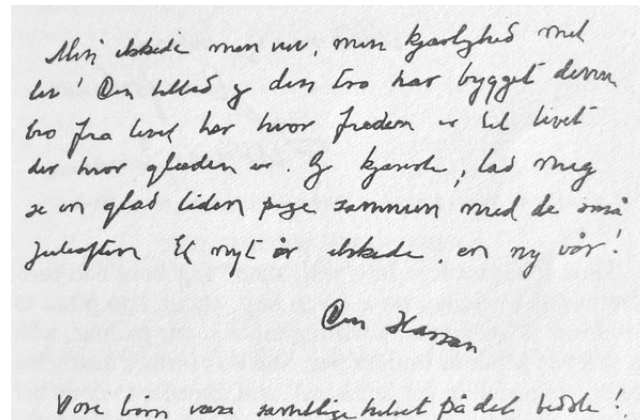 Min elskede min ven, min kjærlighed mit
liv! Din tillid og din tro har bygget denne
bro fra livet her hvor freden er til livet
der hvor glæden er. Og kjæreste, lad meg
se en glad liden pige sammen med de små
juleaften Et nyt år elskede, en ny vår!
Din Hassan
Vore børn være samtlige hilset på det bedste!